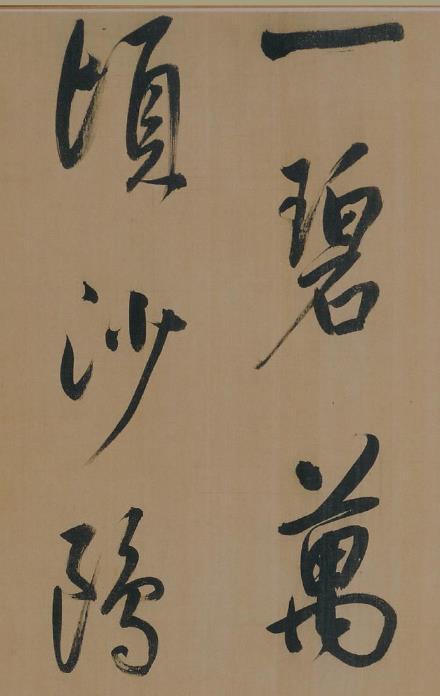 一碧萬
頃沙鷗